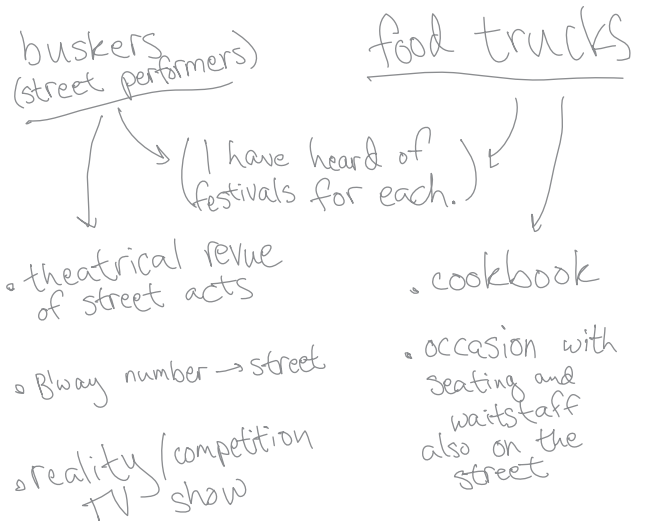 buskers
(street performers)
food trucks
(I have heard of
festivals for each.)
• theatrical revue
of street acts
• B'way number → street
• reality/competition
TV show
• cookbook
• occasion with
seating and
waitstaff
also on the
street